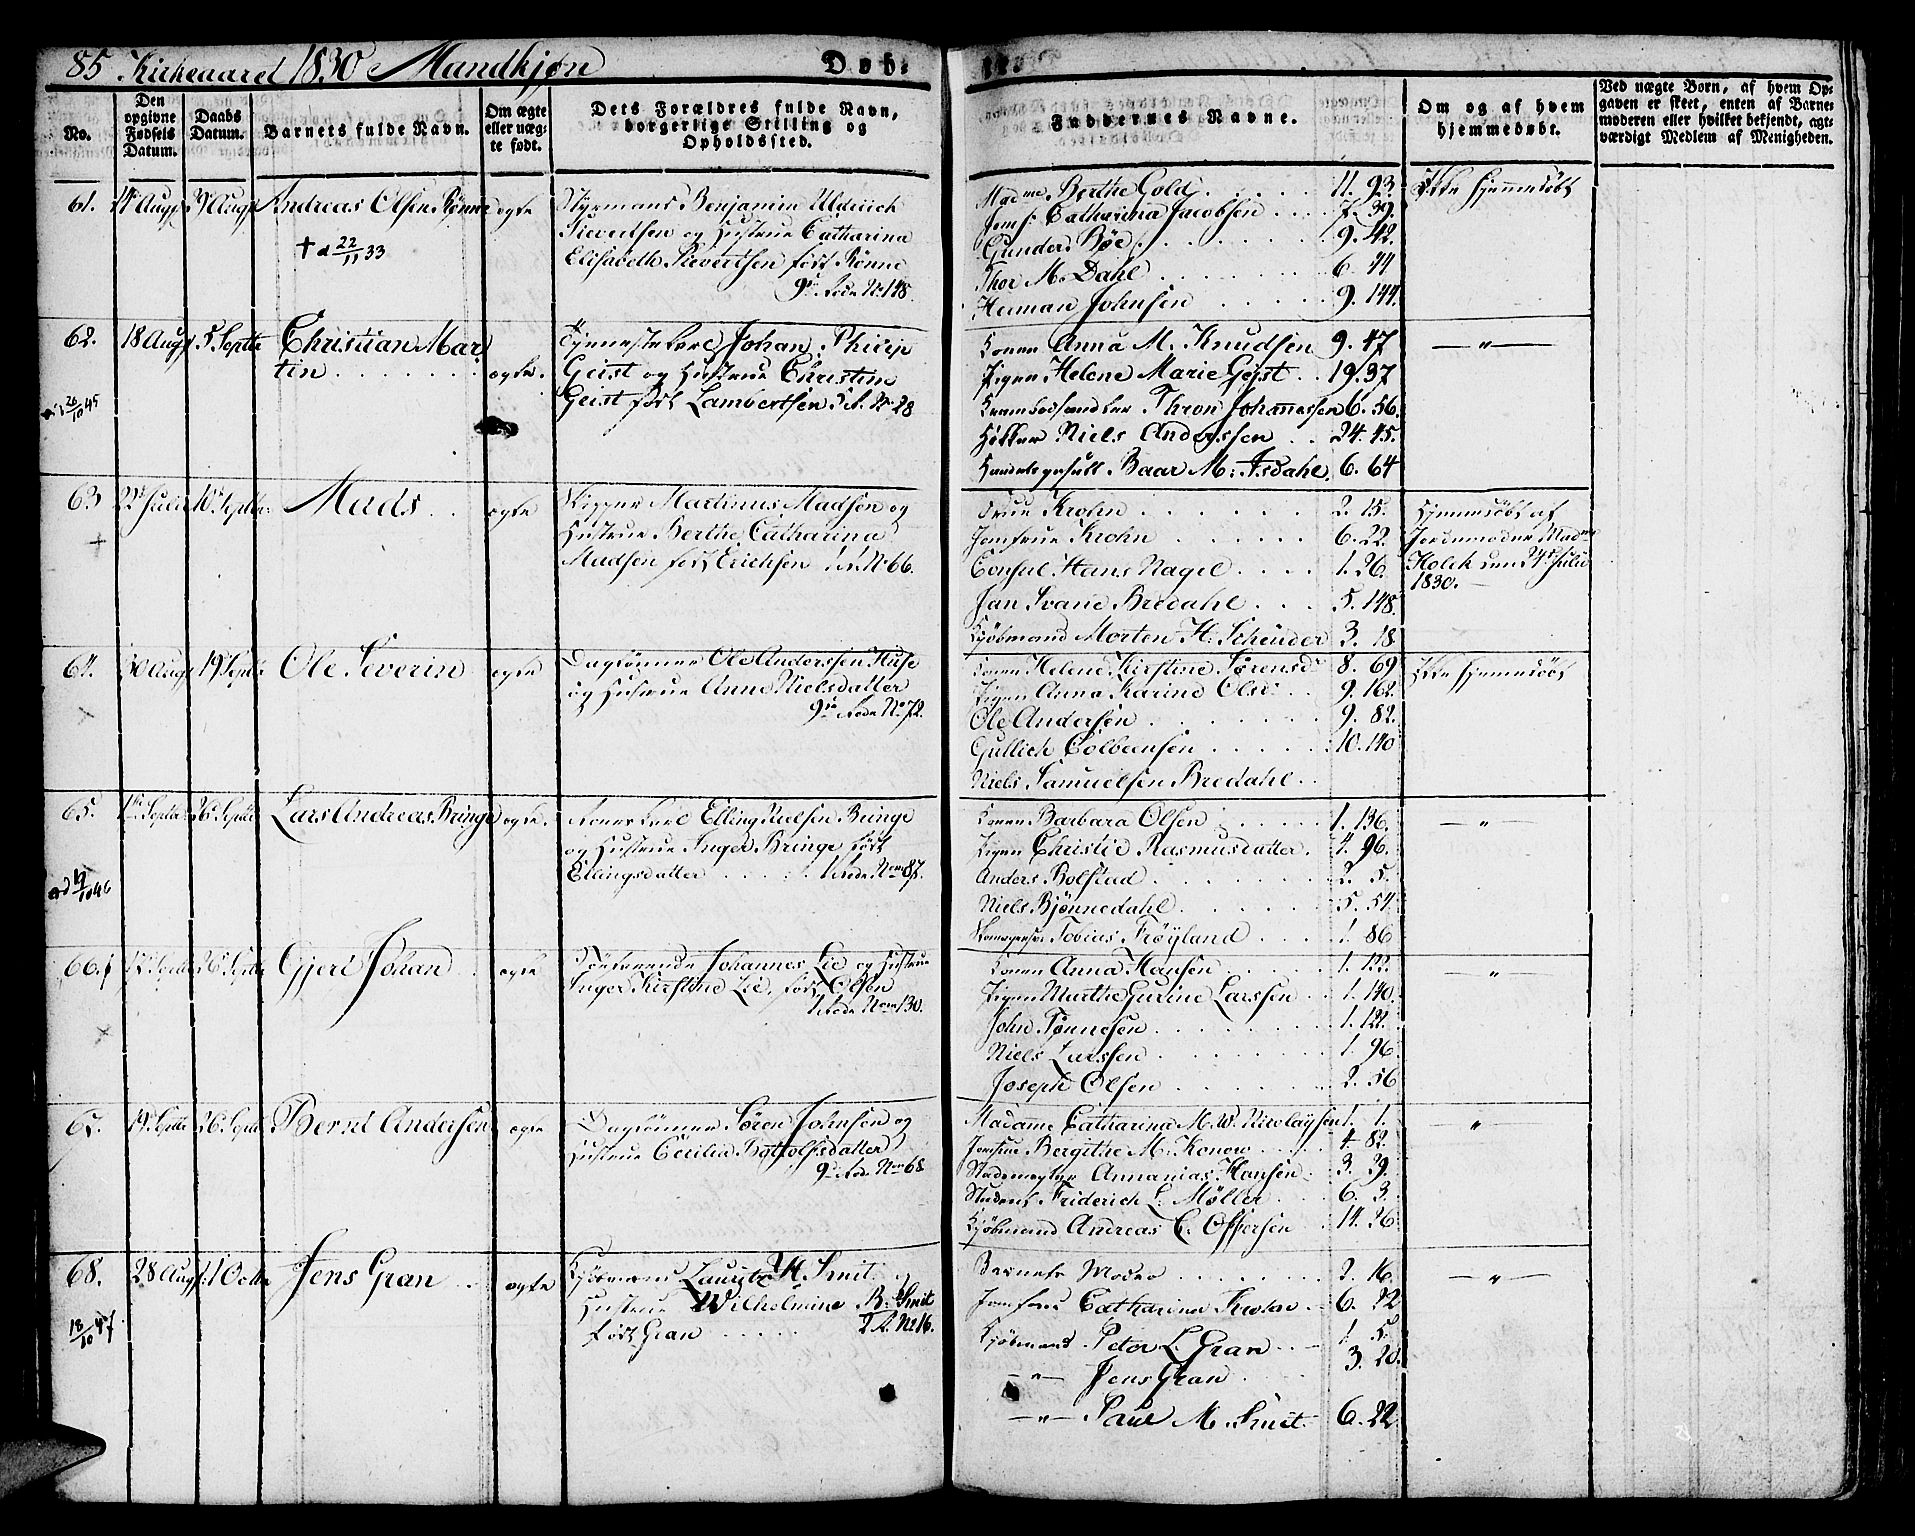 85 Kirkeaaret 1830 Mandkjøn
Døb-
te.
No.
Den opgivne Fødsels Datum.
Daabs Datum.
Barnets fulde Navn.
Om ægte eller uægte født.
Dets Forældres fulde Navn, borgerlige Stilling og Opholdssted.
Faddernes Navne.
Om og af hvem hjemmedøbt.
Ved uægte Børn, af hvem Opgaven er skeet, enten af Barnemoderen eller hvilket bekjendt, agtværdigt Medlem af Menigheden.
61. Augst Augst Andreas Olsen Rønne ægte
† d 22/11 33
Styrmand Benjamin Uldrich
Sievertsen og Hustrue Catharina
Elisabeth Sievertsen født Rønne
9de Rode No 148.
Madme Berthe Gold 11. 93.
Jomf. Catharina Jacobsen 7. 39.
Gunder Bøe 9. 42.
Thor M. Dahl 6. 44
Herman Johnsen 9. 144.
Ikke hjemmedøbt
62. 18 Augst 5 Septbr Christian Mar
tin ægte.
26/10 45
Tjenestekarl Johan Philip
Geist og Hustrue Christine
Geist født Lambertsen 5 R. No 28
Konen Anna M. Knudsen 9. 47
Pigen Helene Marie Geist 19. 37
Thron Johannessen 6. 56.
Høkker Niels Anderssen 24. 45.
Baar M. Isdahl. 6. 64
— " —
63 22de Julii 10de Septbr Mads ægte
+
Skipper Martinus Madsen og
Hustrue Berthe Catharina
Madsen født Erichsen No 66.
Frue Krohn 2. 15.
Jomfrue Krohn 6. 22.
Consul Hans Nagel 1. 26.
Jan Svane Bredahl 5. 148.
Kjøbmand Morten H. Scheuder 3. 18
Hjemmedøbt af
Jordemoder Madme
Holck den 24de Julii
1830.
64. 30 Augst 19de Septbr Ole Severin ægte
Dagtønner Ole Anderssen Huse
og Hustrue Anne Nielsdatter
9de Rode No 72.
Konen Helene Kirstine Sørensd 8. 69
Pigen Anna Karine Olsd 9. 162.
Ole Andersen 9. 82.
Gullich Colbeensen 10. 140
Niels Samuelsen Bredahl
Ikke hjemmedøbt
65. 1ste Septbr 26 Septbr Lars Andreas Bringe ægte.
10 46
Elling Nielsen Bringe
og Hustrue Inger Bringe født
Ellingsdatter 1 Rode No 87.
Konen Barbara Olsen 1. 136.
Pigen Christie Rasmusdatter. 4. 96.
Anders Bolstad 2. 5.
Niels Bjønnedahl 5. 54.
Tobias Frøyland 1. 86
— " —
66. Septbr 26 Septbr Gjert Johan ægte
Johannes Lie og Hustrue
Inger Kirstine Lie, født Olsen
1 Rode No 130.
Konen Anna Hansen 1. 122.
Pigen Marthe Gurine Larssen 1. 140.
John Tønnesen 1. 122.
Niels Larssen 1. 96.
Joseph Olsen 2. 56
— " —
67. 19de Septbr 26 Septbr Bernt Andersen ægte
Dagtønner Søren Johnsen og
Hustrue Cecilia Botholfsdatter
9de Rode No 68
Madame Catharina M. W. Nicolaysen 1. 1.
Jomfrue Bergithe M. Konow 4. 82.
Annanias Hansen 3. 39.
Student Friderich L. Møller 6. 3.
Kjøbmand Andreas C. Offersen 14. 26.
— " —
68. 28 Augst 1 Octbr Jens Gran ægte
18/10 47
Kjøbmand Lauritz H. Smit og
Hustrue Wilhelmine B. Smit
født Gran 2 R. No 16.
Barnets Moder 2. 16.
Jomfrue Catharina 6. 22
Kjøbmand Peter L. Gran 1. 5.
— " — Jens Gran 3. 20.
— " — Paul M. Smit. 6. 22
— " —